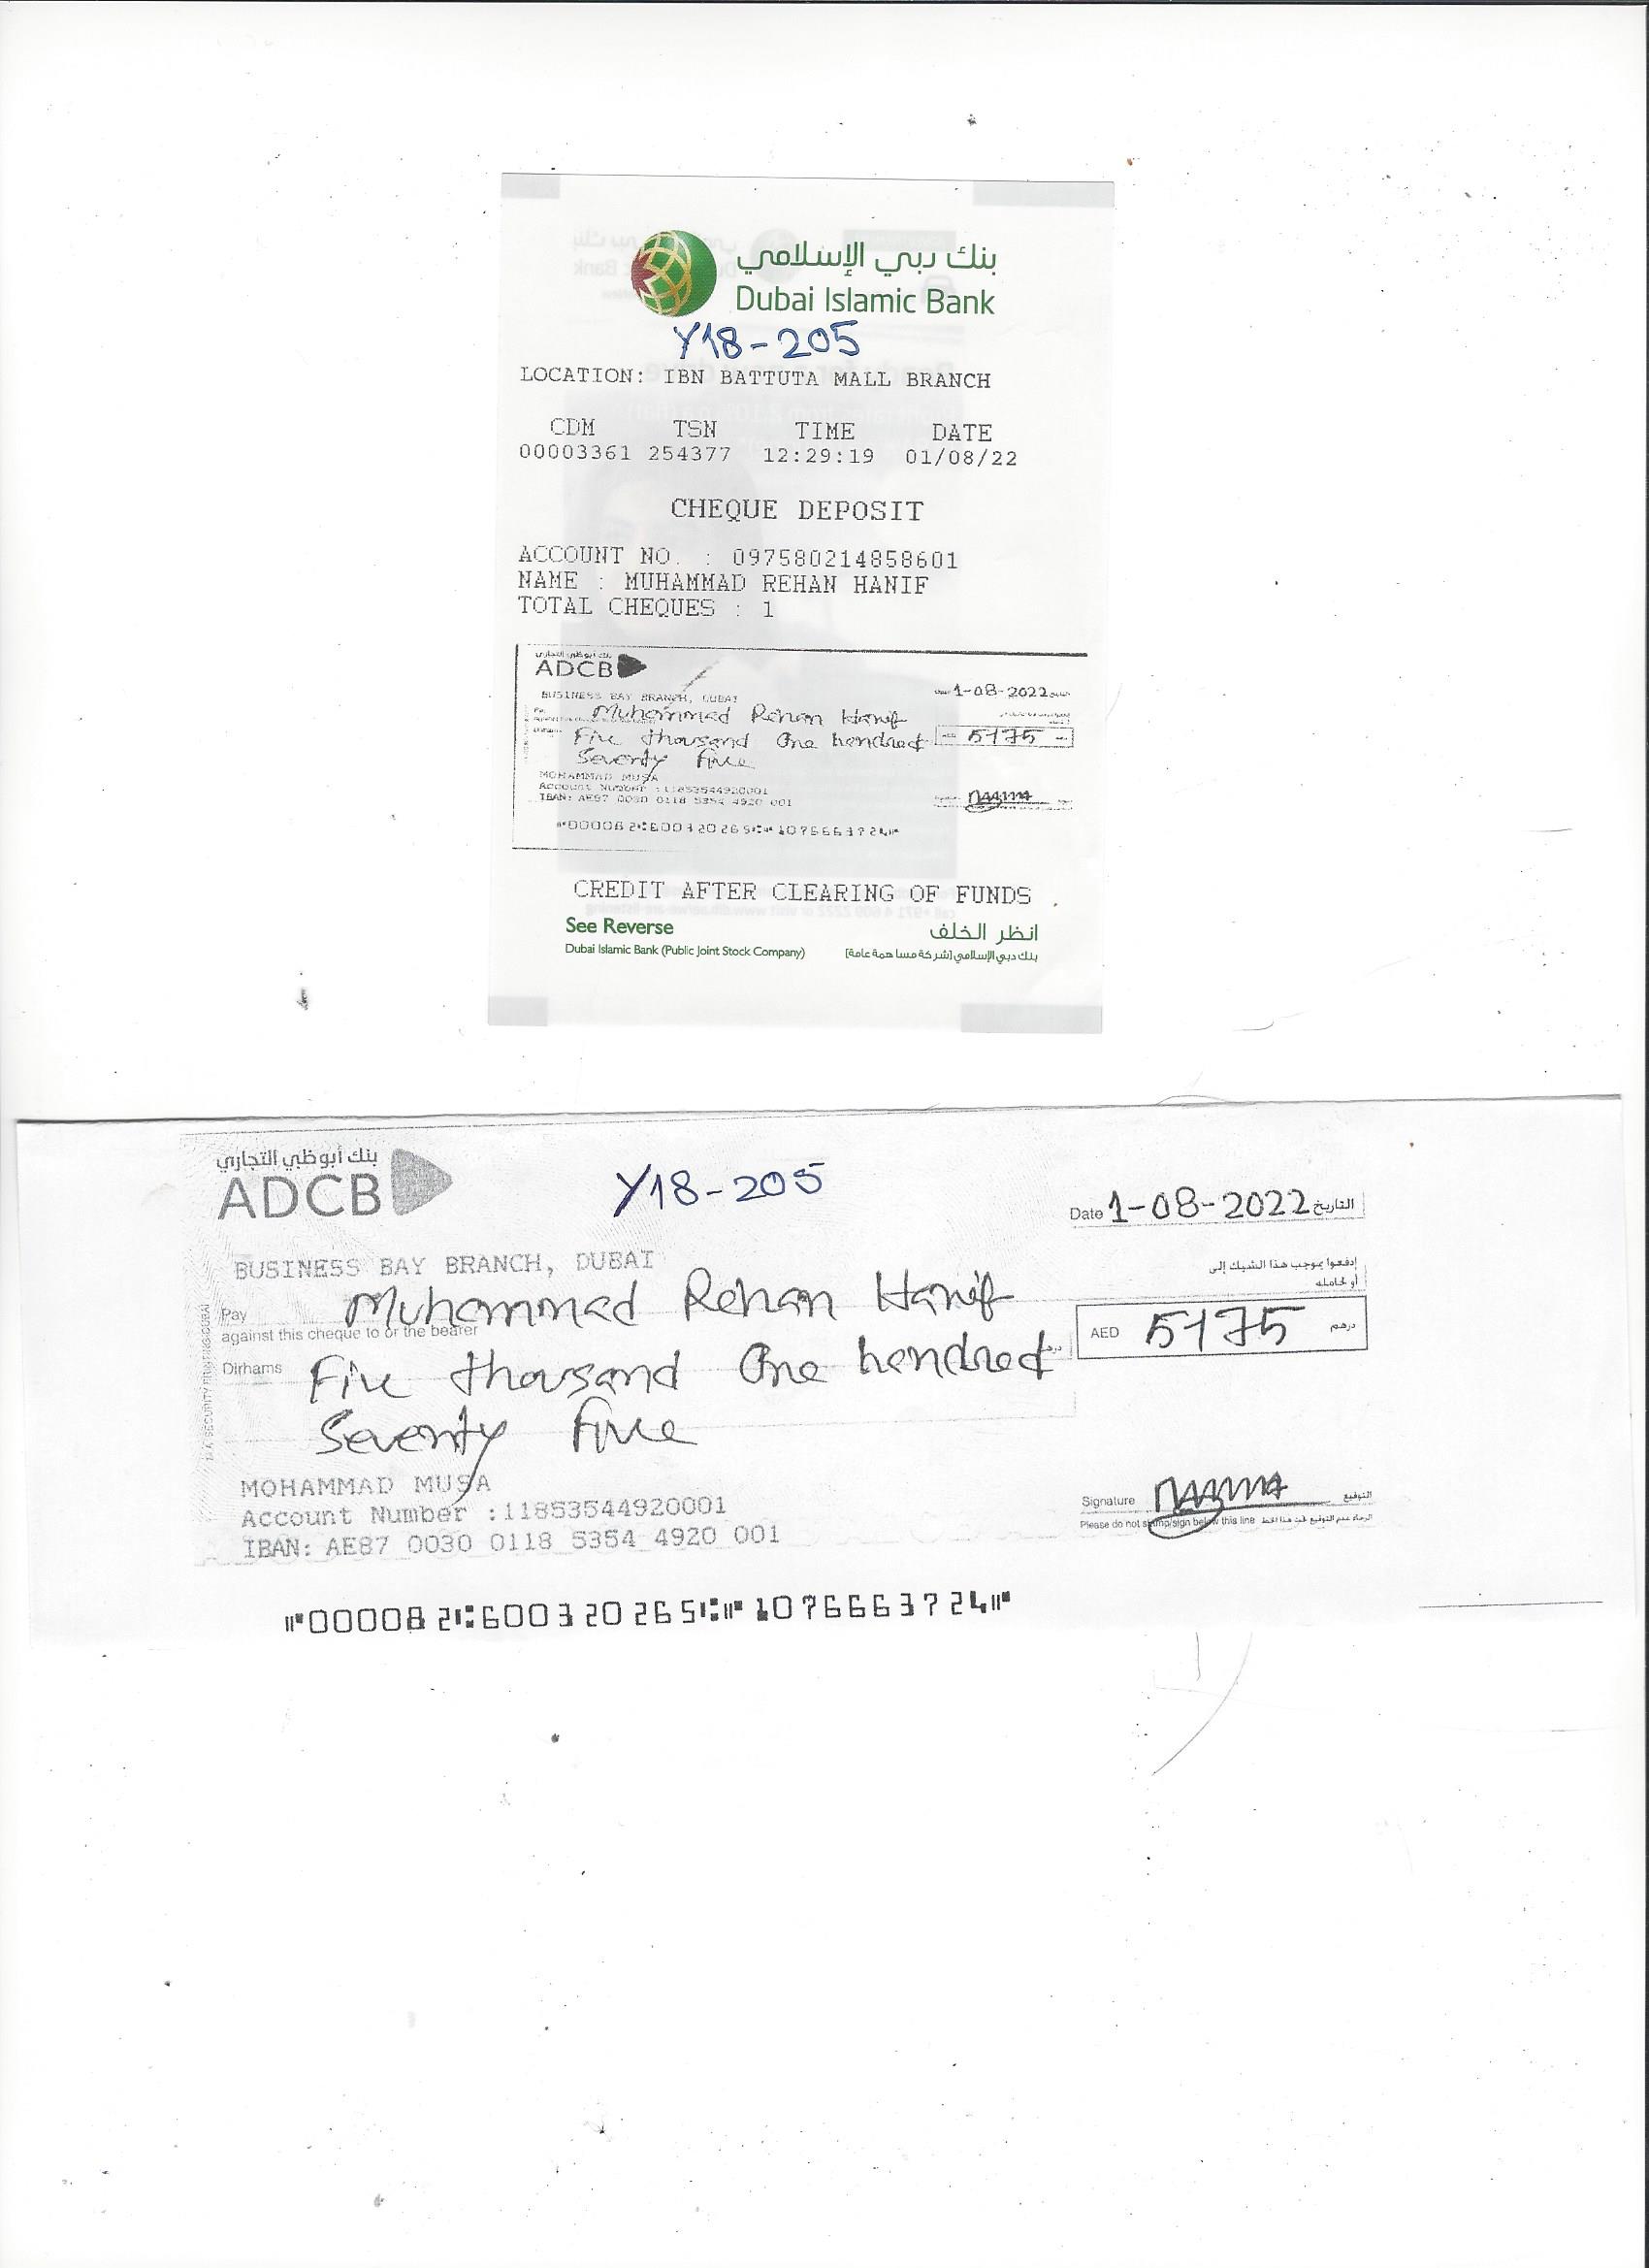 بنك دبي الإسلامي
Dubai Islamic Bank
Y18-205
LOCATION: IBN BATTUTA MALL BRANCH
CDM TSN TIME DATE
00003361 254377 12:29:19 01/08/22
CHEQUE DEPOSIT
ACCOUNT NO. : 097580214858601
NAME : MUHAMMAD REHAN HANIF
TOTAL CHEQUES : 1
بنك أبوظبي التجاري
ADCB
BUSINESS BAY BRANCH, DUBAI
1-08-2022
Muhammad Rehan Hanif
Five thousand One hendred 5175
Seventy Five
MOHAMMAD MUSA
Account Number :11853544920001
IBAN: AE87 0030 0118 5354 4920 001
⑈000082⑆600320265⑆⑈1076663724⑈
CREDIT AFTER CLEARING OF FUNDS
See Reverse انظر الخلف
Dubai Islamic Bank (Public Joint Stock Company) بنك دبي الإسلامي (شركة مساهمة عامة)
بنك أبوظبي التجاري
ADCB
Y18-205
Date 1-08-2022 التاريخ
BUSINESS BAY BRANCH, DUBAI
إدفعوا بموجب هذا الشيك إلى
أو لحامله
Pay Muhammad Rehan Hanif
against this cheque to or the bearer
AED 5175 درهم
Dirhams Five thousand One hendred
Seventy Five
MOHAMMAD MUSA
Account Number :11853544920001
IBAN: AE87 0030 0118 5354 4920 001
Signature التوقيع
Please do not stamp/sign below this line الرجاء عدم التوقيع تحت هذا الخط
⑈000082⑆600320265⑆⑈1076663724⑈